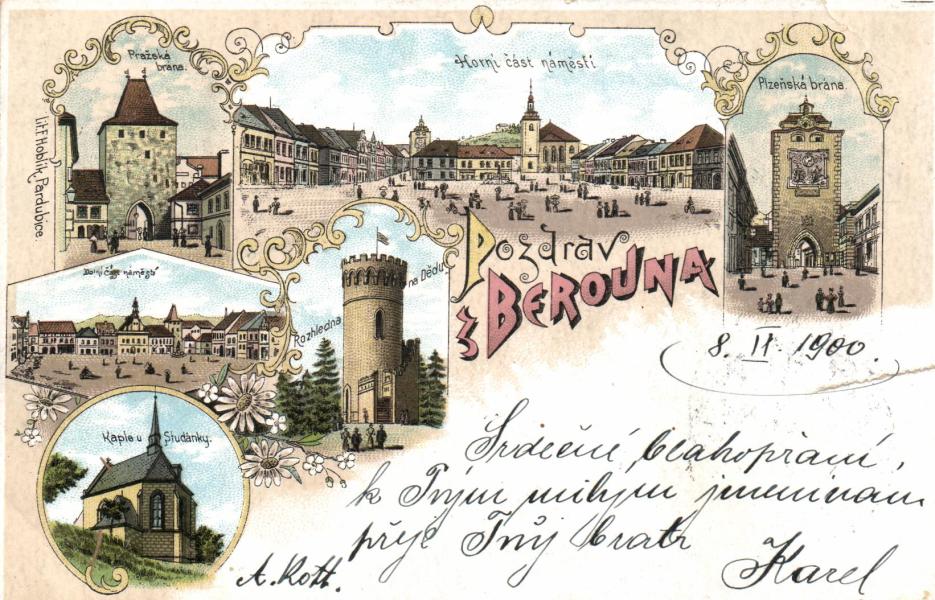 Pražská
brána.
Horní část náměstí
Plzeňská brána.
Lit. F. Hoblík, Pardubice.
Pozdrav
z BEROUNA
Dolní část náměstí
Rozhledna na Dědu
Kaple u Studánky.
8. II. 1900.
Srdečné blahopřání,
k Tvým milým jmeninám
přeje Tvůj bratr
Karel
A. Kott.